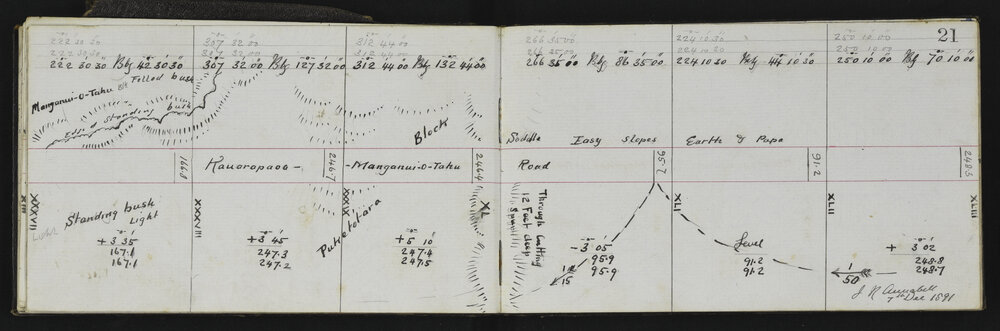 21
222 30 30 307 32 00 312 44 00 266 35 00 224 10 30 250 10 00
222 30 30 307 32 00 312 44 00 266 35 00 224 10 30 250 10 00
222 30 30 Bktg 42 30 30 307 32 00 Bktg 127 32 00 312 44 00 Bktg 132 44 00 266 35 00 Bktg 86 35 00 224 10 30 Bktg 44 10 30 250 10 00 Bktg 70 10 00
Felled bush
Manganui-O-Tahu Blk
Edge of Standing bush
Block
Saddle Easy slopes Earth & Papa
1668 Kauoropaoa - 2467 - Manganui-O-Tahu 2464 Road 95.7 91.2 248.5
XXXVII XXXVIII XXXIX XL XLI XLII XLIII
Standing bush
Light
Light
+ 3 35
167.1
167.1
+ 3 45
247.3
247.2
Puketotara
+ 5 10
247.4
247.5
Through Cutting
12 Feet deep
Spur
- 3 05
95.9
95.9
1 in
15
Level
91.2
91.2
1
50
+ 3 02
248.8
248.7
J R Annabell
7th Dec 1891